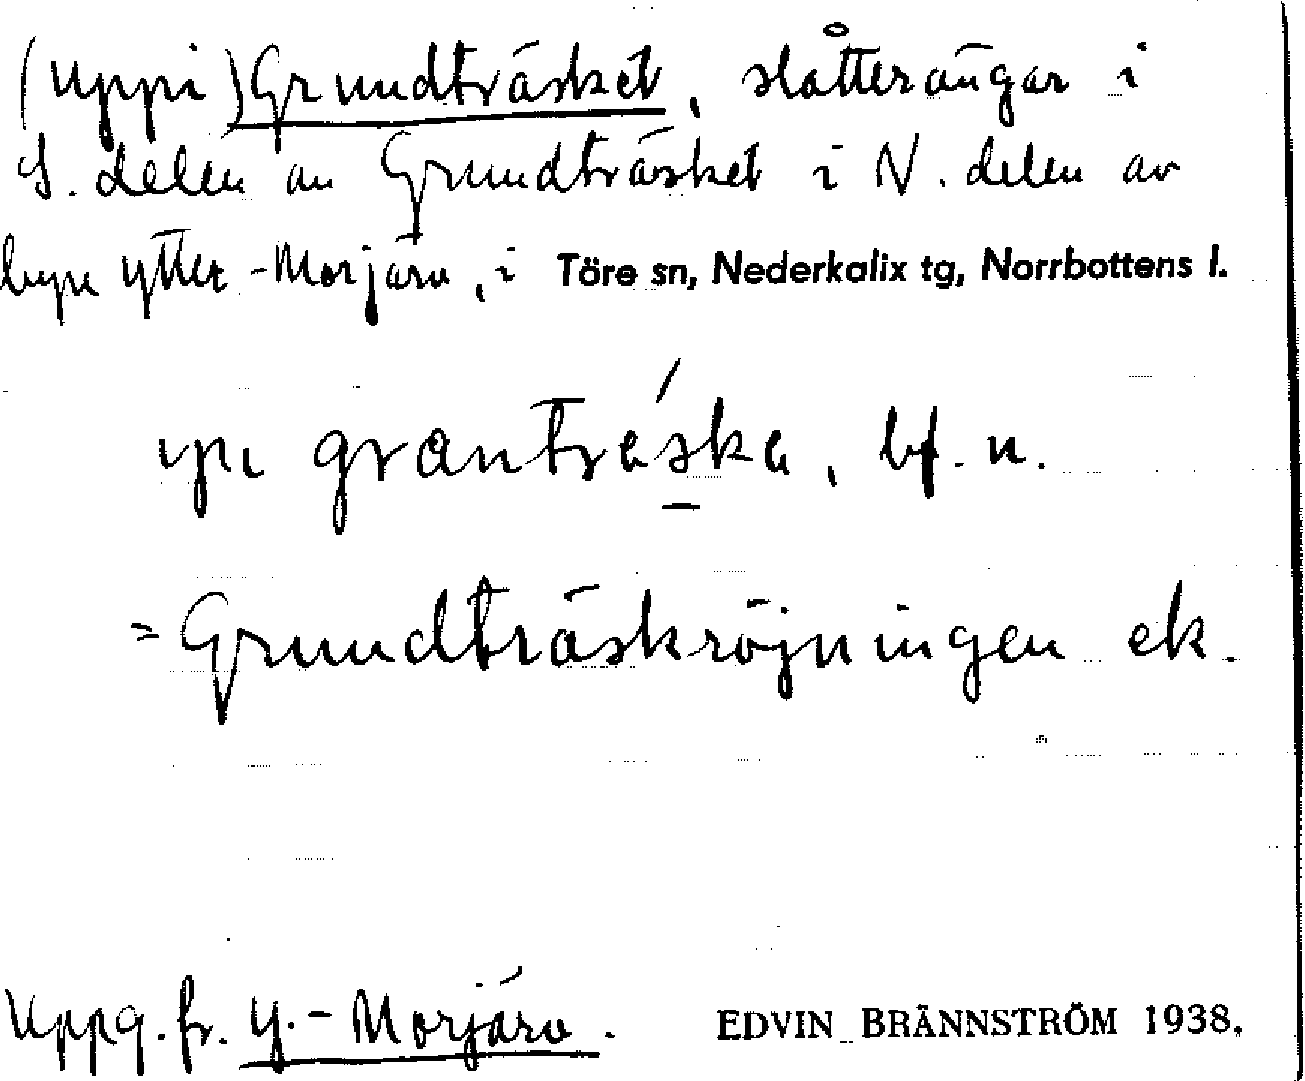 (Uppi) Grundträsket, slåtterängar i
S. delen av Grundträsket i N. delen av
byn Ytter-Morjärv, i Töre sn, Nederkalix tg, Norrbottens l.
ypi grantrèska, bf. n.
= Grundträskröjningen ek.
Uppg. fr. Y.-Morjärv. EDVIN BRÄNNSTRÖM 1938.